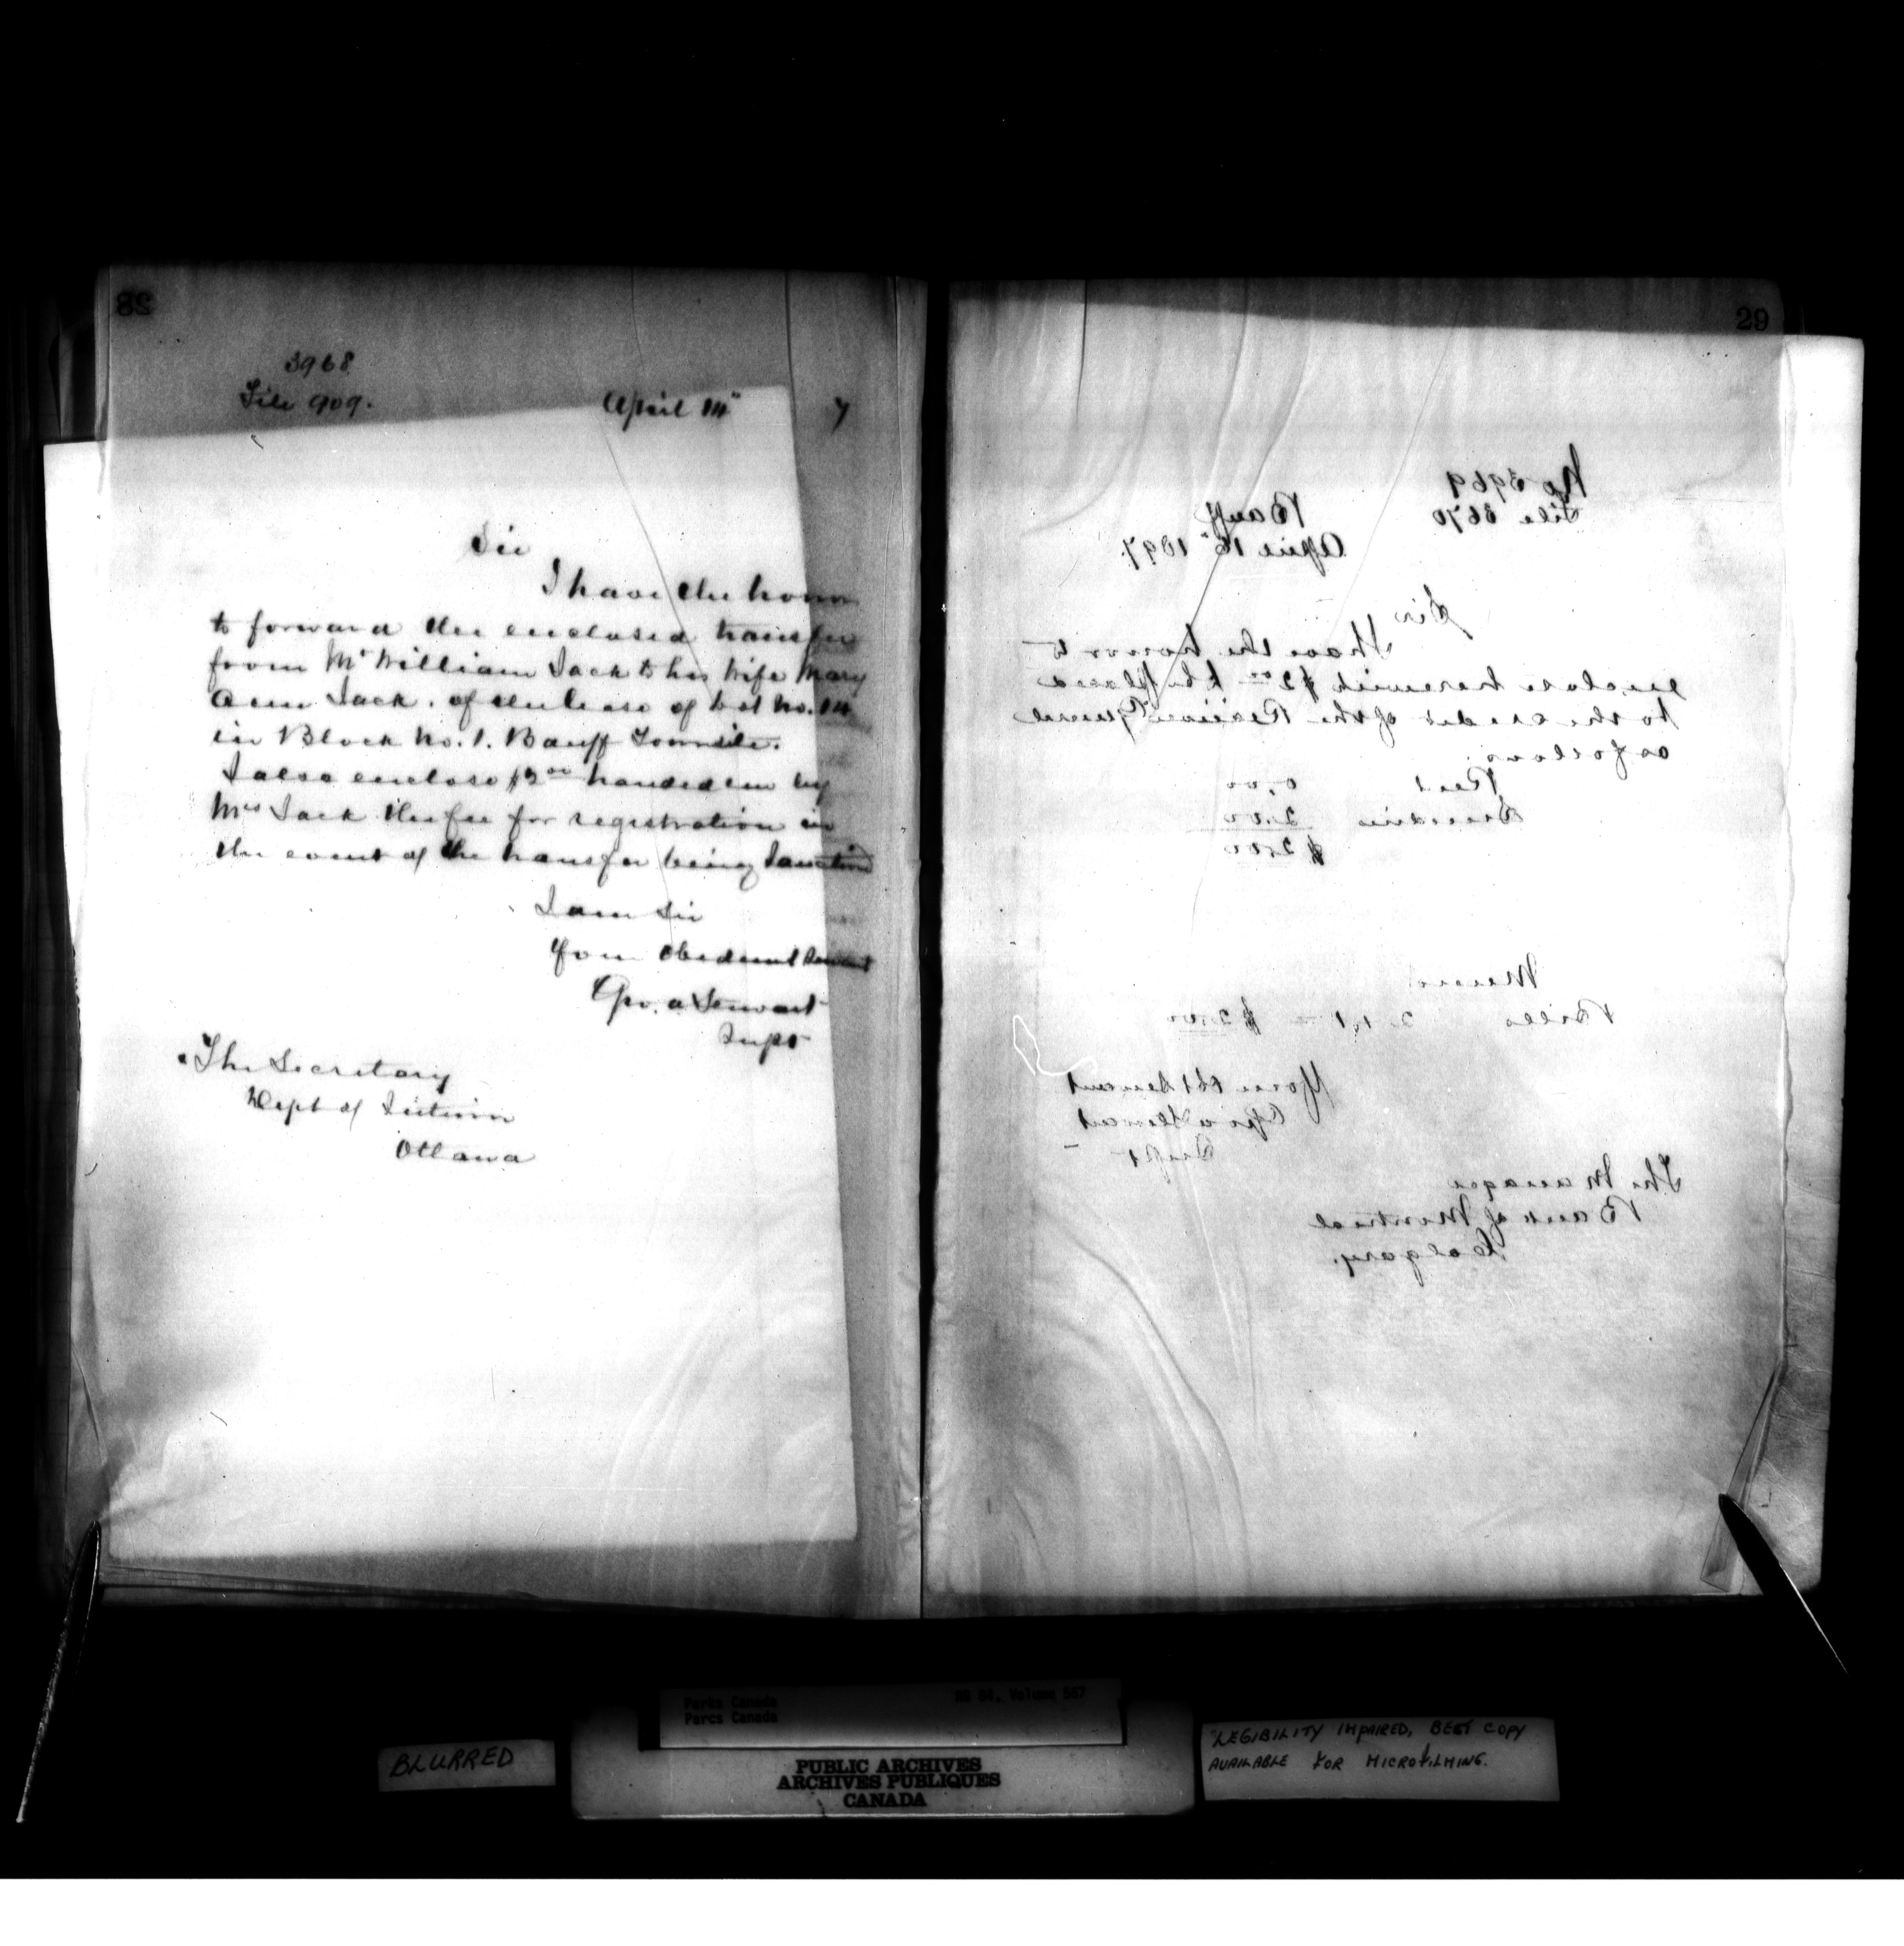 28
3968
File 909.
April 14" 7
Sir
I have the honor
to forward the enclosed transfer
from Mr William Jack to his wife Mary
Ann Jack. of the lease of Lot No. 14
in Block No. 1. Banff Townsite.
I also enclose $2.00 handed in by
Mrs Jack the fee for registration in
the event of the transfer being Sanction
I am Sir
Your Obedient Servant
Geo. A Stewart
Supt
The Secretary
Dept of Interior
Ottawa
29
No 3969
File 3670 Banff
April 15" 1897.
Sir
I have the honor to
enclose herewith $2.00 to be placed
to the credit of the Receiver General
as follows.
Rent 0.00
Sundries 2.00
$2.00
Memo
Bills 2 x 1 = $2.00
Your Obt Servant
Geo A Stewart
Supt
The Manager
Bank of Montreal
Calgary.
Parks Canada RG 84, Volume 567
Parcs Canada
BLURRED
PUBLIC ARCHIVES
ARCHIVES PUBLIQUES
CANADA
"LEGIBILITY IMPAIRED, BEST COPY
AVAILABLE FOR MICROFILMING.